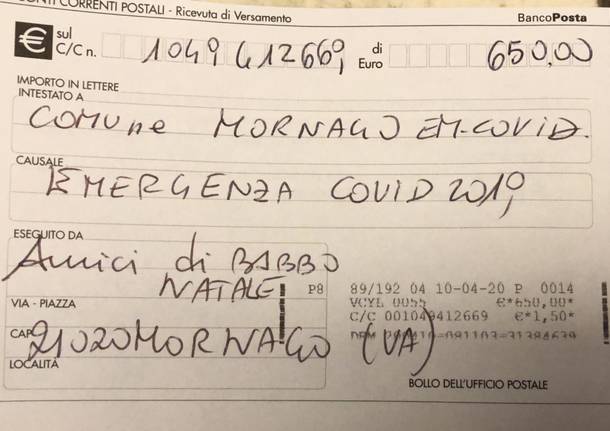 CONTI CORRENTI POSTALI - Ricevuta di Versamento
BancoPosta
€ sul C/C n. 1049412669 di Euro 650,00
IMPORTO IN LETTERE
INTESTATO A
COMUNE MORNAGO EM-COVID.
CAUSALE
EMERGENZA COVID 2019
ESEGUITO DA
Amici di BABBO
NATALE
P8 89/192 04 10-04-20 P 0014
VCYL 0055 €*650,00*
VIA - PIAZZA
C/C 001049412669 €*1,50*
CAP 21020 MORNAGO (VA)
LOCALITÀ
BOLLO DELL'UFFICIO POSTALE